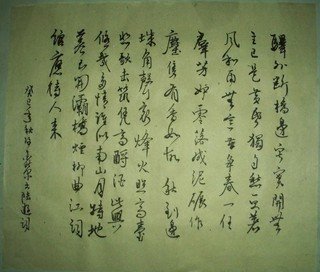 驛外断橋邊寂寞開無
主已是黄昏獨自愁更著
風和雨無意苦争春一任
群芳妒零落成泥碾作
塵只有香如故秋到邊
城角聲哀烽火照高臺
悲歌击筑凭高酹酒此興
悠哉多情谁似南山月特地
暮云開灞橋煙柳曲江池
館應待人来
癸巳年秋陸游詞